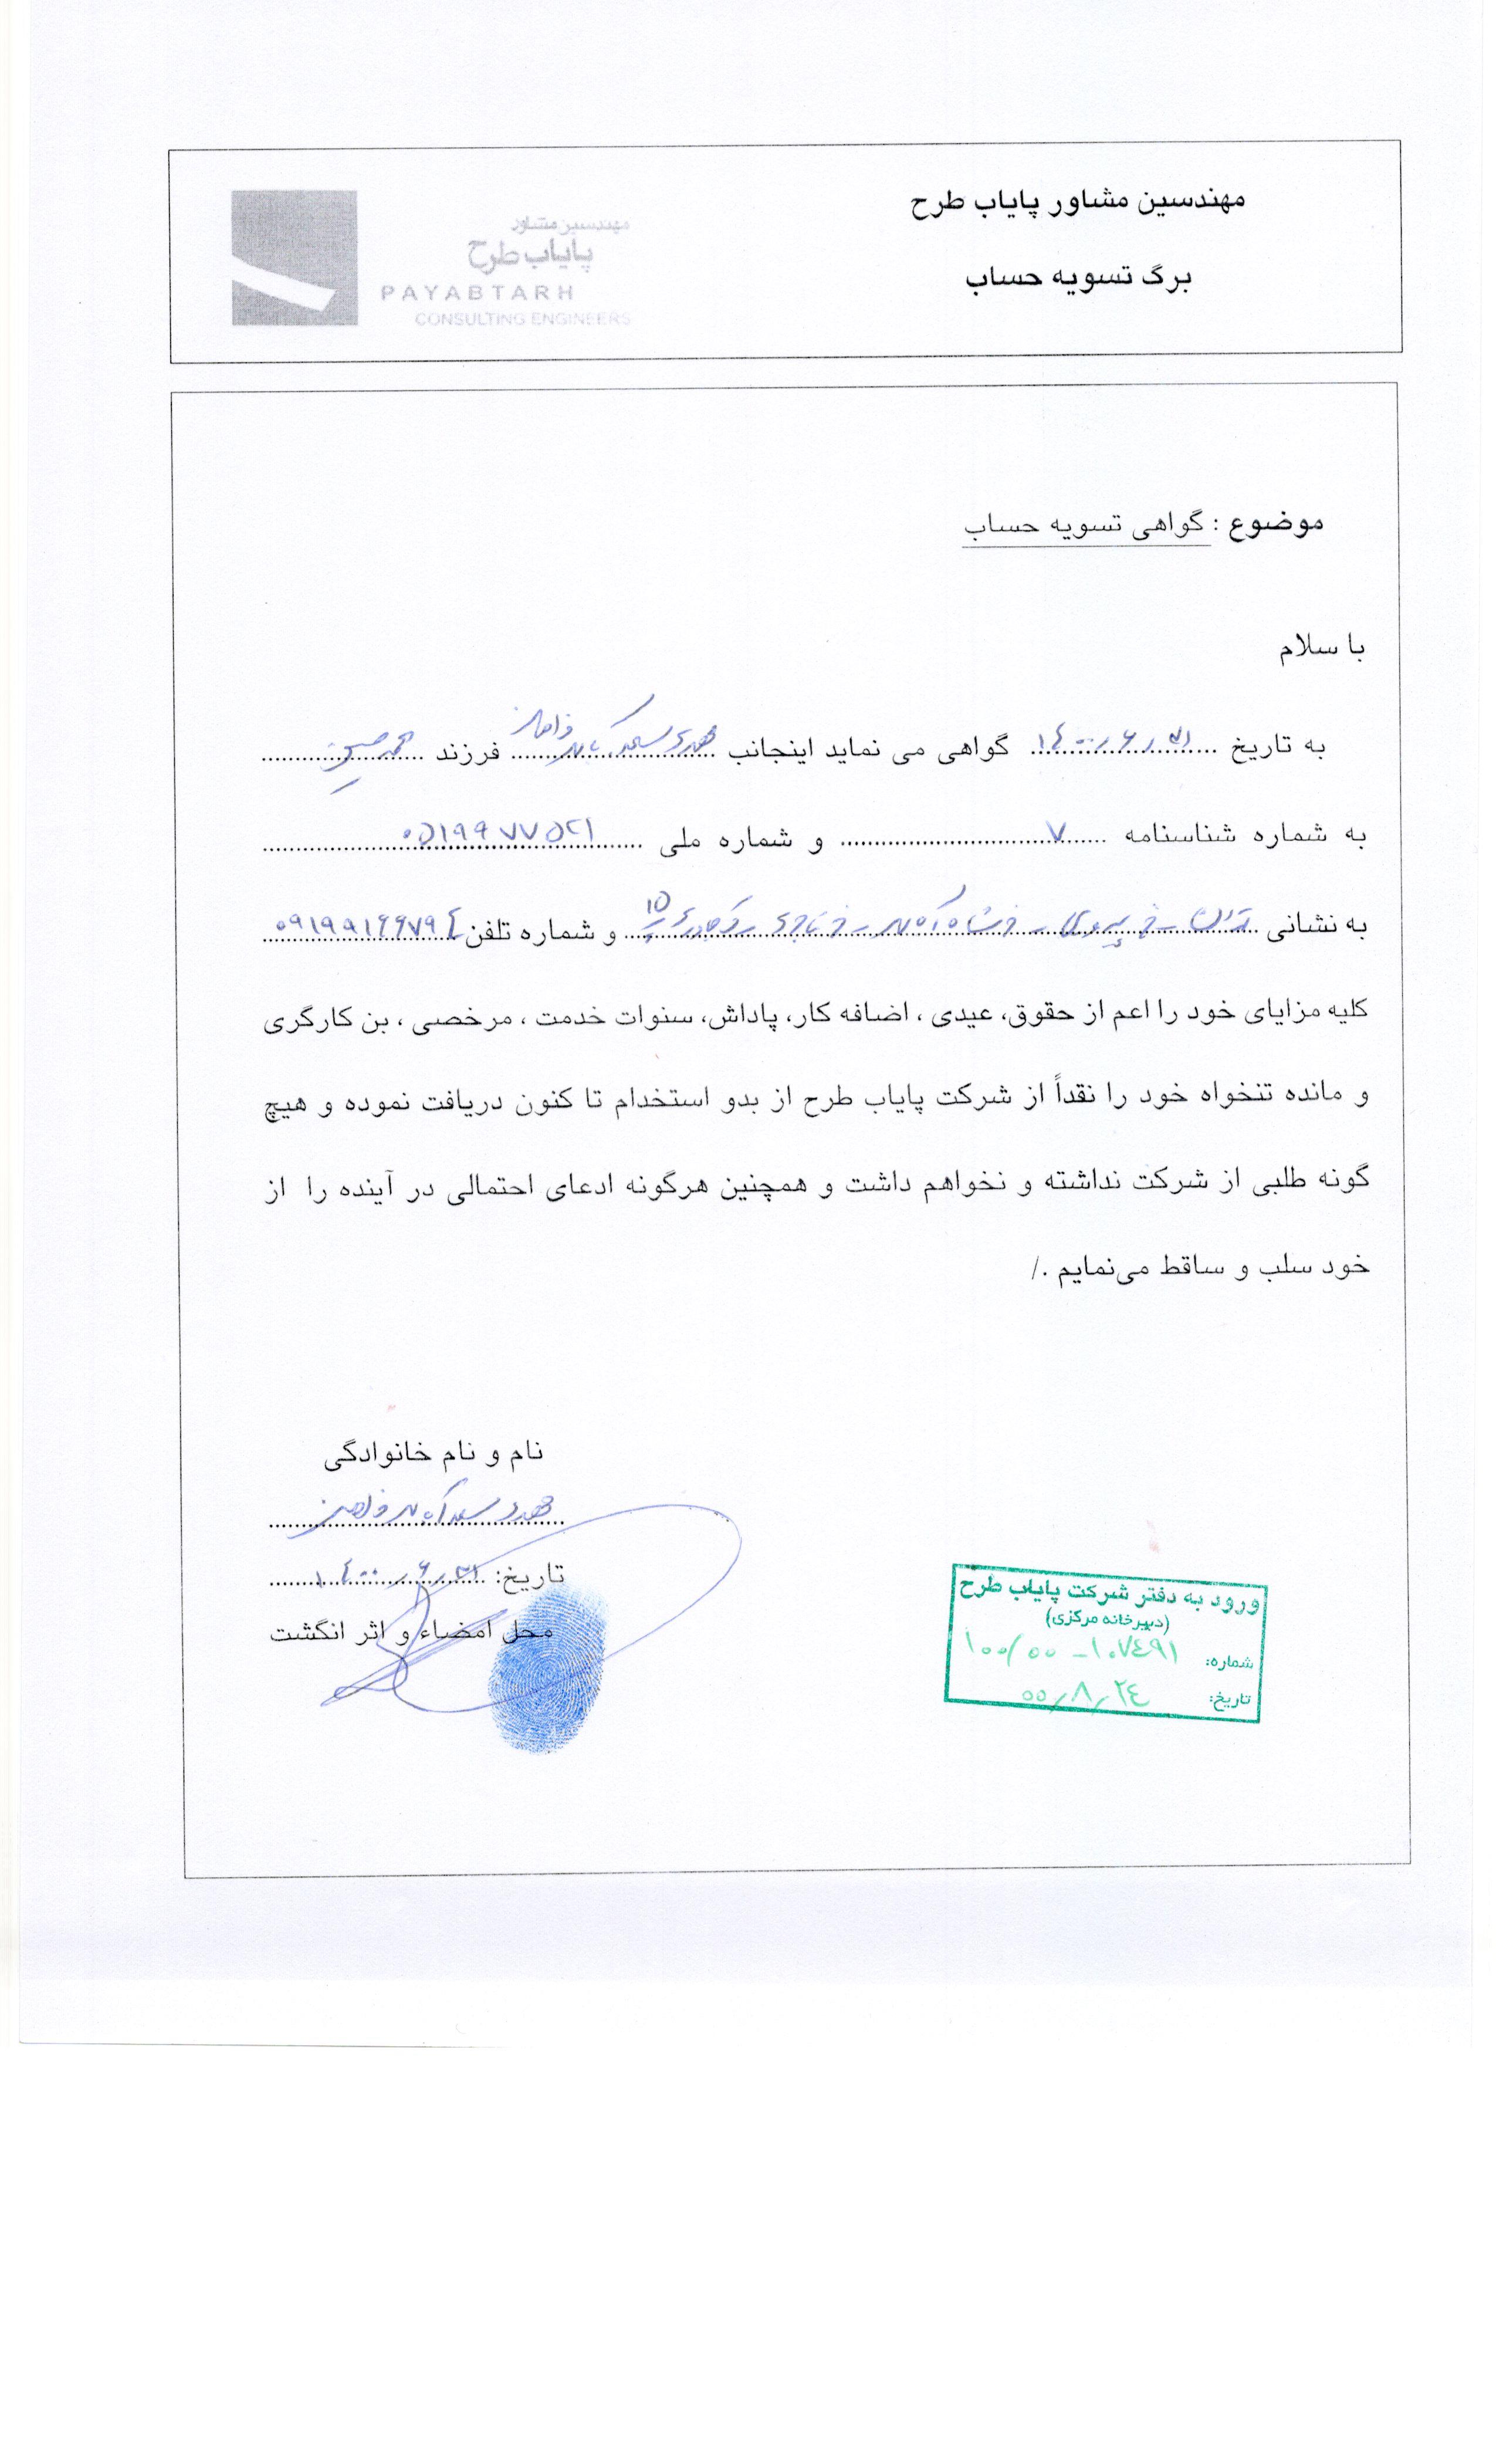 مهندسین مشاور پایاب طرح
برگ تسویه حساب
مهندسین مشاور
پایاب طرح
PAYABTARH
CONSULTING ENGINEERS
موضوع : گواهی تسویه حساب
با سلام
به تاریخ ۱۴۰۰/۶/۳۱ گواهی می نماید اینجانب مهدی فرزند
به شماره شناسنامه ۷ و شماره ملی ۰۵۱۹۹۷۷۵۲۱
به نشانی تهران - خ پیروزی - ۱۵ و شماره تلفن
کلیه مزایای خود را اعم از حقوق، عیدی ، اضافه کار، پاداش، سنوات خدمت ، مرخصی ، بن کارگری
و مانده تنخواه خود را نقداً از شرکت پایاب طرح از بدو استخدام تا کنون دریافت نموده و هیچ
گونه طلبی از شرکت نداشته و نخواهم داشت و همچنین هرگونه ادعای احتمالی در آینده را از
خود سلب و ساقط می‌نمایم ./
نام و نام خانوادگی
مهدی
تاریخ: ۱۴۰۰/۶/۳۱
محل امضاء و اثر انگشت
ورود به دفتر شرکت پایاب طرح
(دبیرخانه مرکزی)
شماره: ۱۰۰/۰۰-۱۰۷۴۹۱
تاریخ: ۰۰/۸/۲۴